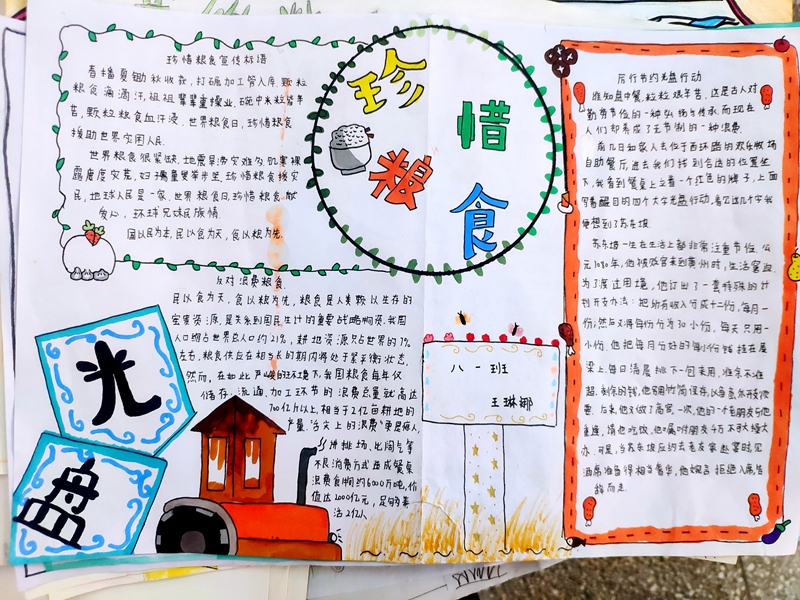 珍惜粮食宣传标语
春播夏锄秋收获,打碾加工管入库.颗粒
粮食海滴汗,祖祖辈辈重操业,碗中米粒皆辛
苦,颗粒粮食血汗浸.世界粮食日,珍惜粮食
援助世界穷困人.
世界粮食很紧缺,地震旱涝灾难多,饥寒裸
露度度灾荒,妇孺童叟举步坚,珍惜粮食援灾
民,地球人民是一家.世界粮食日,珍惜粮食献
爱心,环球兄妹民族情.
国以民为本,民以食为天,食以粮为先.
珍
惜
粮
食
反对浪费粮食
民以食为天,食以粮为先,粮食是人类赖以生存的
宝贵资源,是关系到国民生计的重要战略物资.我国
人口绝占世界总人口约21%,耕地资源只占世界的7%
左右,粮食供应在相当长的期内将处于紧平衡状态.
然而,在如此严峻的环境下,我国粮食每年仅
储存、流通、加工环节的浪费总量就高达
700亿斤以上,相当于2亿亩耕地的
产量.舌尖上的浪费更是惊人,
讲排场、比阔气等
不良消费方式造成餐桌
浪费食物约6000万吨,价
值达2000亿元,足够多养
活2亿人.
光
盘
八一班
王琳娜
厉行节约光盘行动
谁知盘中餐,粒粒艰辛苦,这是古人对
勤劳节俭的一种弘扬与传承,而现在
人们却养成了无节制的一种浪费.
前几日如家人去位于西环路的欢乐牧场
自助餐厅,进去我们找到合适的位置坐
下,我看到餐桌上立着一个红色的牌子,上面
写着醒目的四个大字光盘行动,看见这几个字我
便想到了苏东坡.
苏东坡一生在生活上都非常注重节俭.公
元1080年,他被贬官来到黄州时,生活窘迫.
为了度过困境,他订出了一套特殊的计
划开支办法:把所有收入分成十二份,每月一
份;然后又将每份分为30小份,每天只用一
小份.他把每月分好的每小份钱挂在屋
梁上,每日清晨挑下一包来用,准余不准
超.剩余的钱,他
而走.